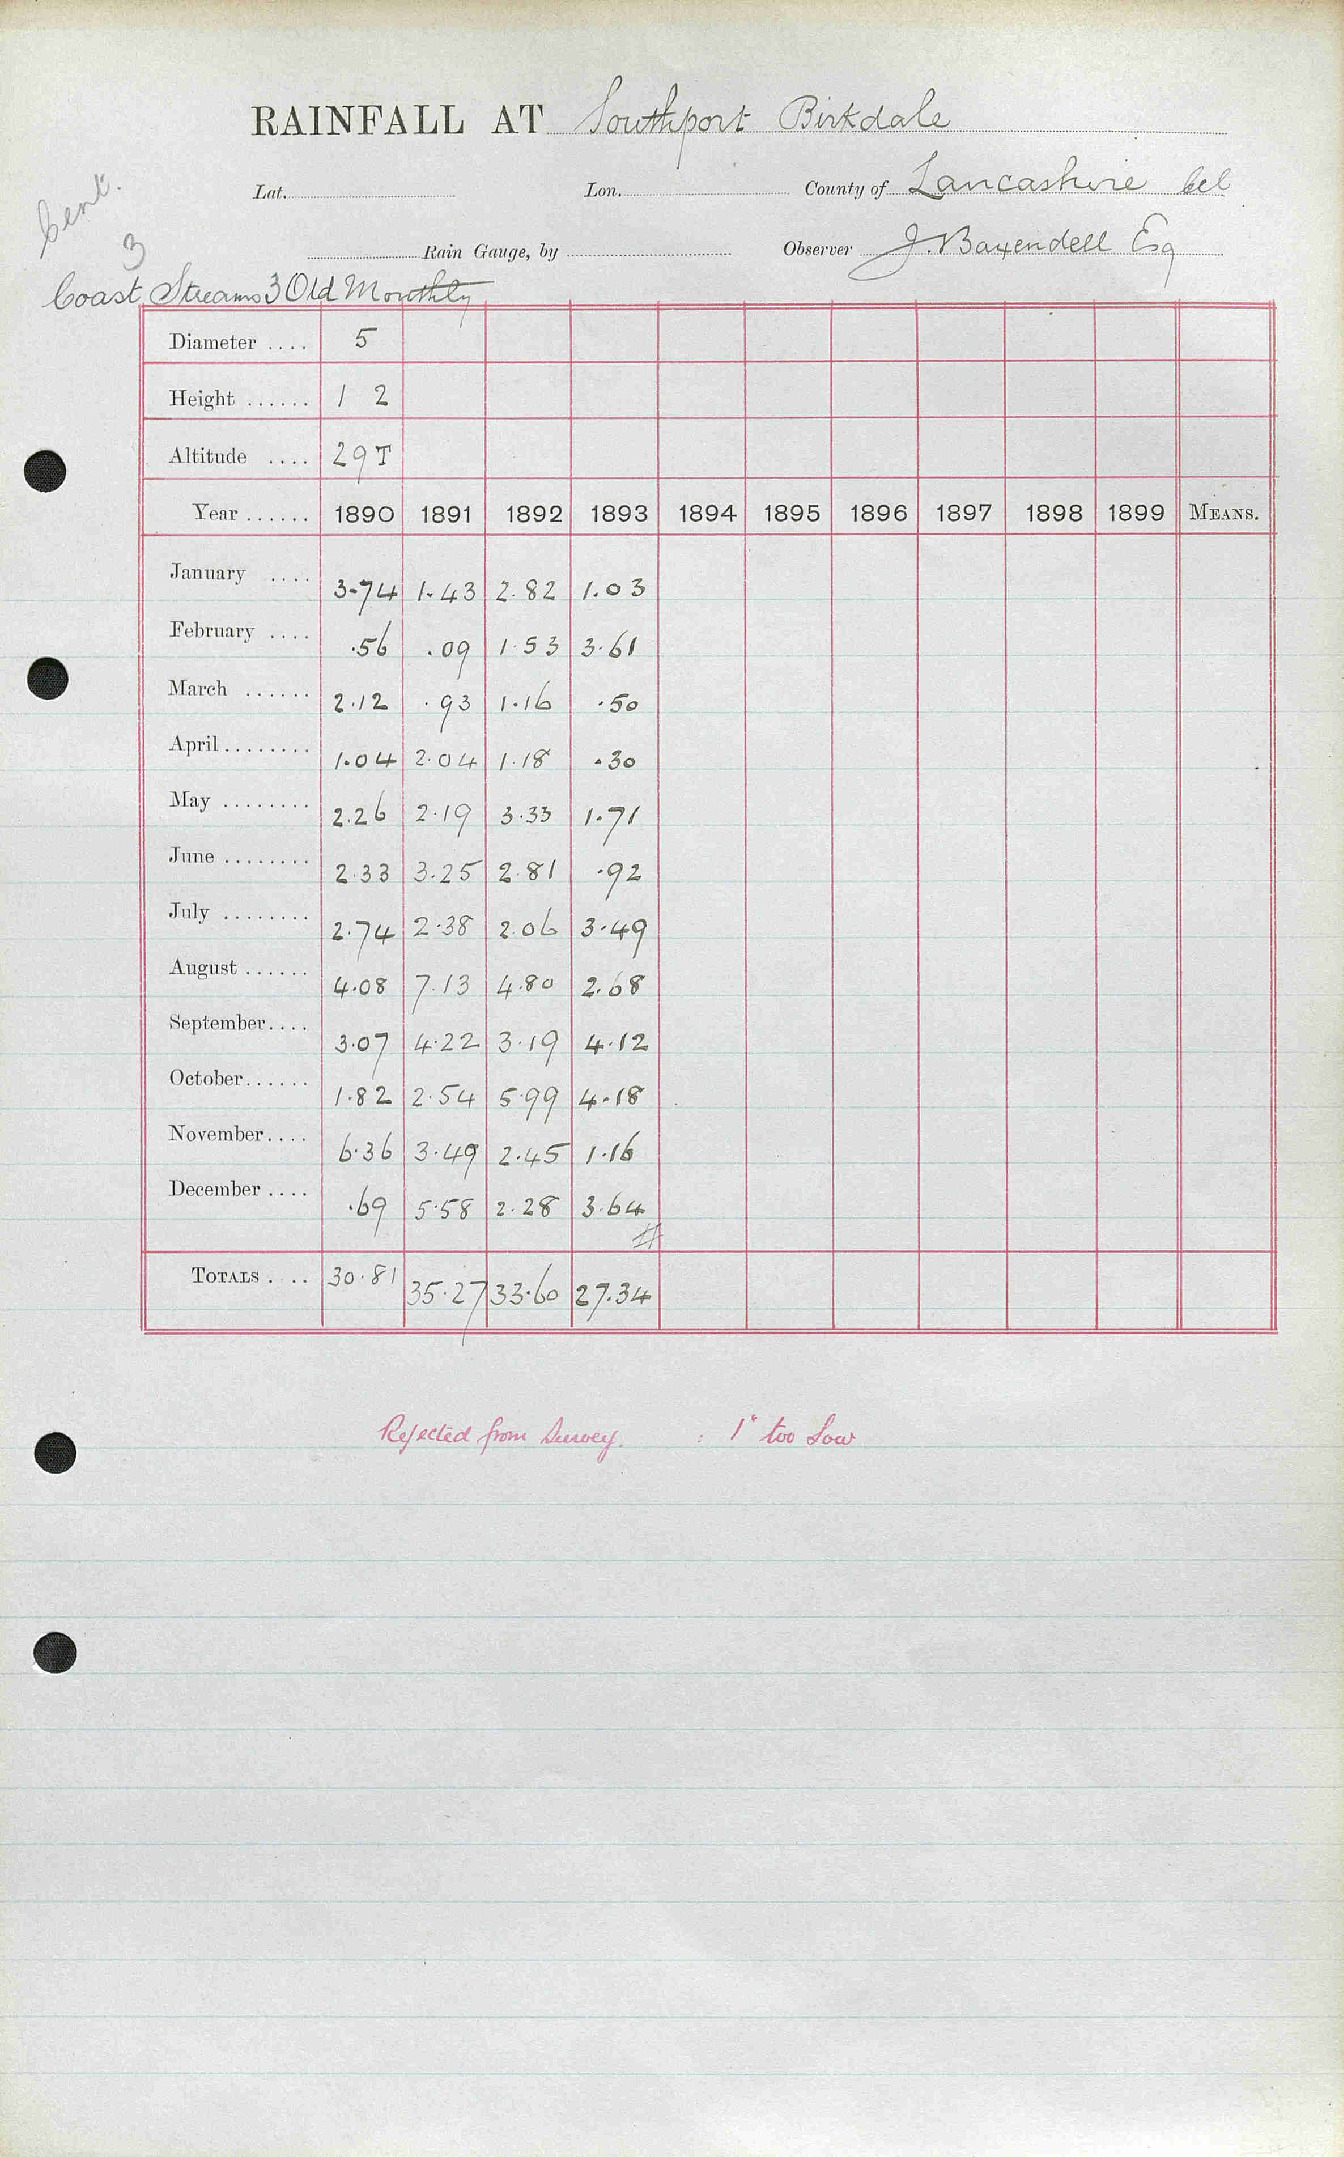 RAINFALL AT Southport Birkdale
Lat. Lon. County of Lancashire
Cent.
3
Rain Gauge, by Observer J. Baxendell Esq
Coast Streams 3 Old Monthly
Diameter .... 5
Height ...... 1 2
Altitude .... 29 T
Year ...... 1890 1891 1892 1893 1894 1895 1896 1897 1898 1899 MEANS.
January .... 3.74 1.43 2.82 1.03
February .... .56 .09 1.53 3.61
March ...... 2.12 .93 1.16 .50
April ........ 1.04 2.04 1.18 .30
May ........ 2.26 2.19 3.33 1.71
June ........ 2.33 3.25 2.81 .92
July ........ 2.74 2.38 2.06 3.49
August ...... 4.08 7.13 4.80 2.68
September.... 3.07 4.22 3.19 4.12
October...... 1.82 2.54 5.99 4.18
November.... 6.36 3.49 2.45 1.16
December .... .69 5.58 2.28 3.64
TOTALS . .. 30.81 35.27 33.60 27.34
Rejected from Survey. : 1" too low